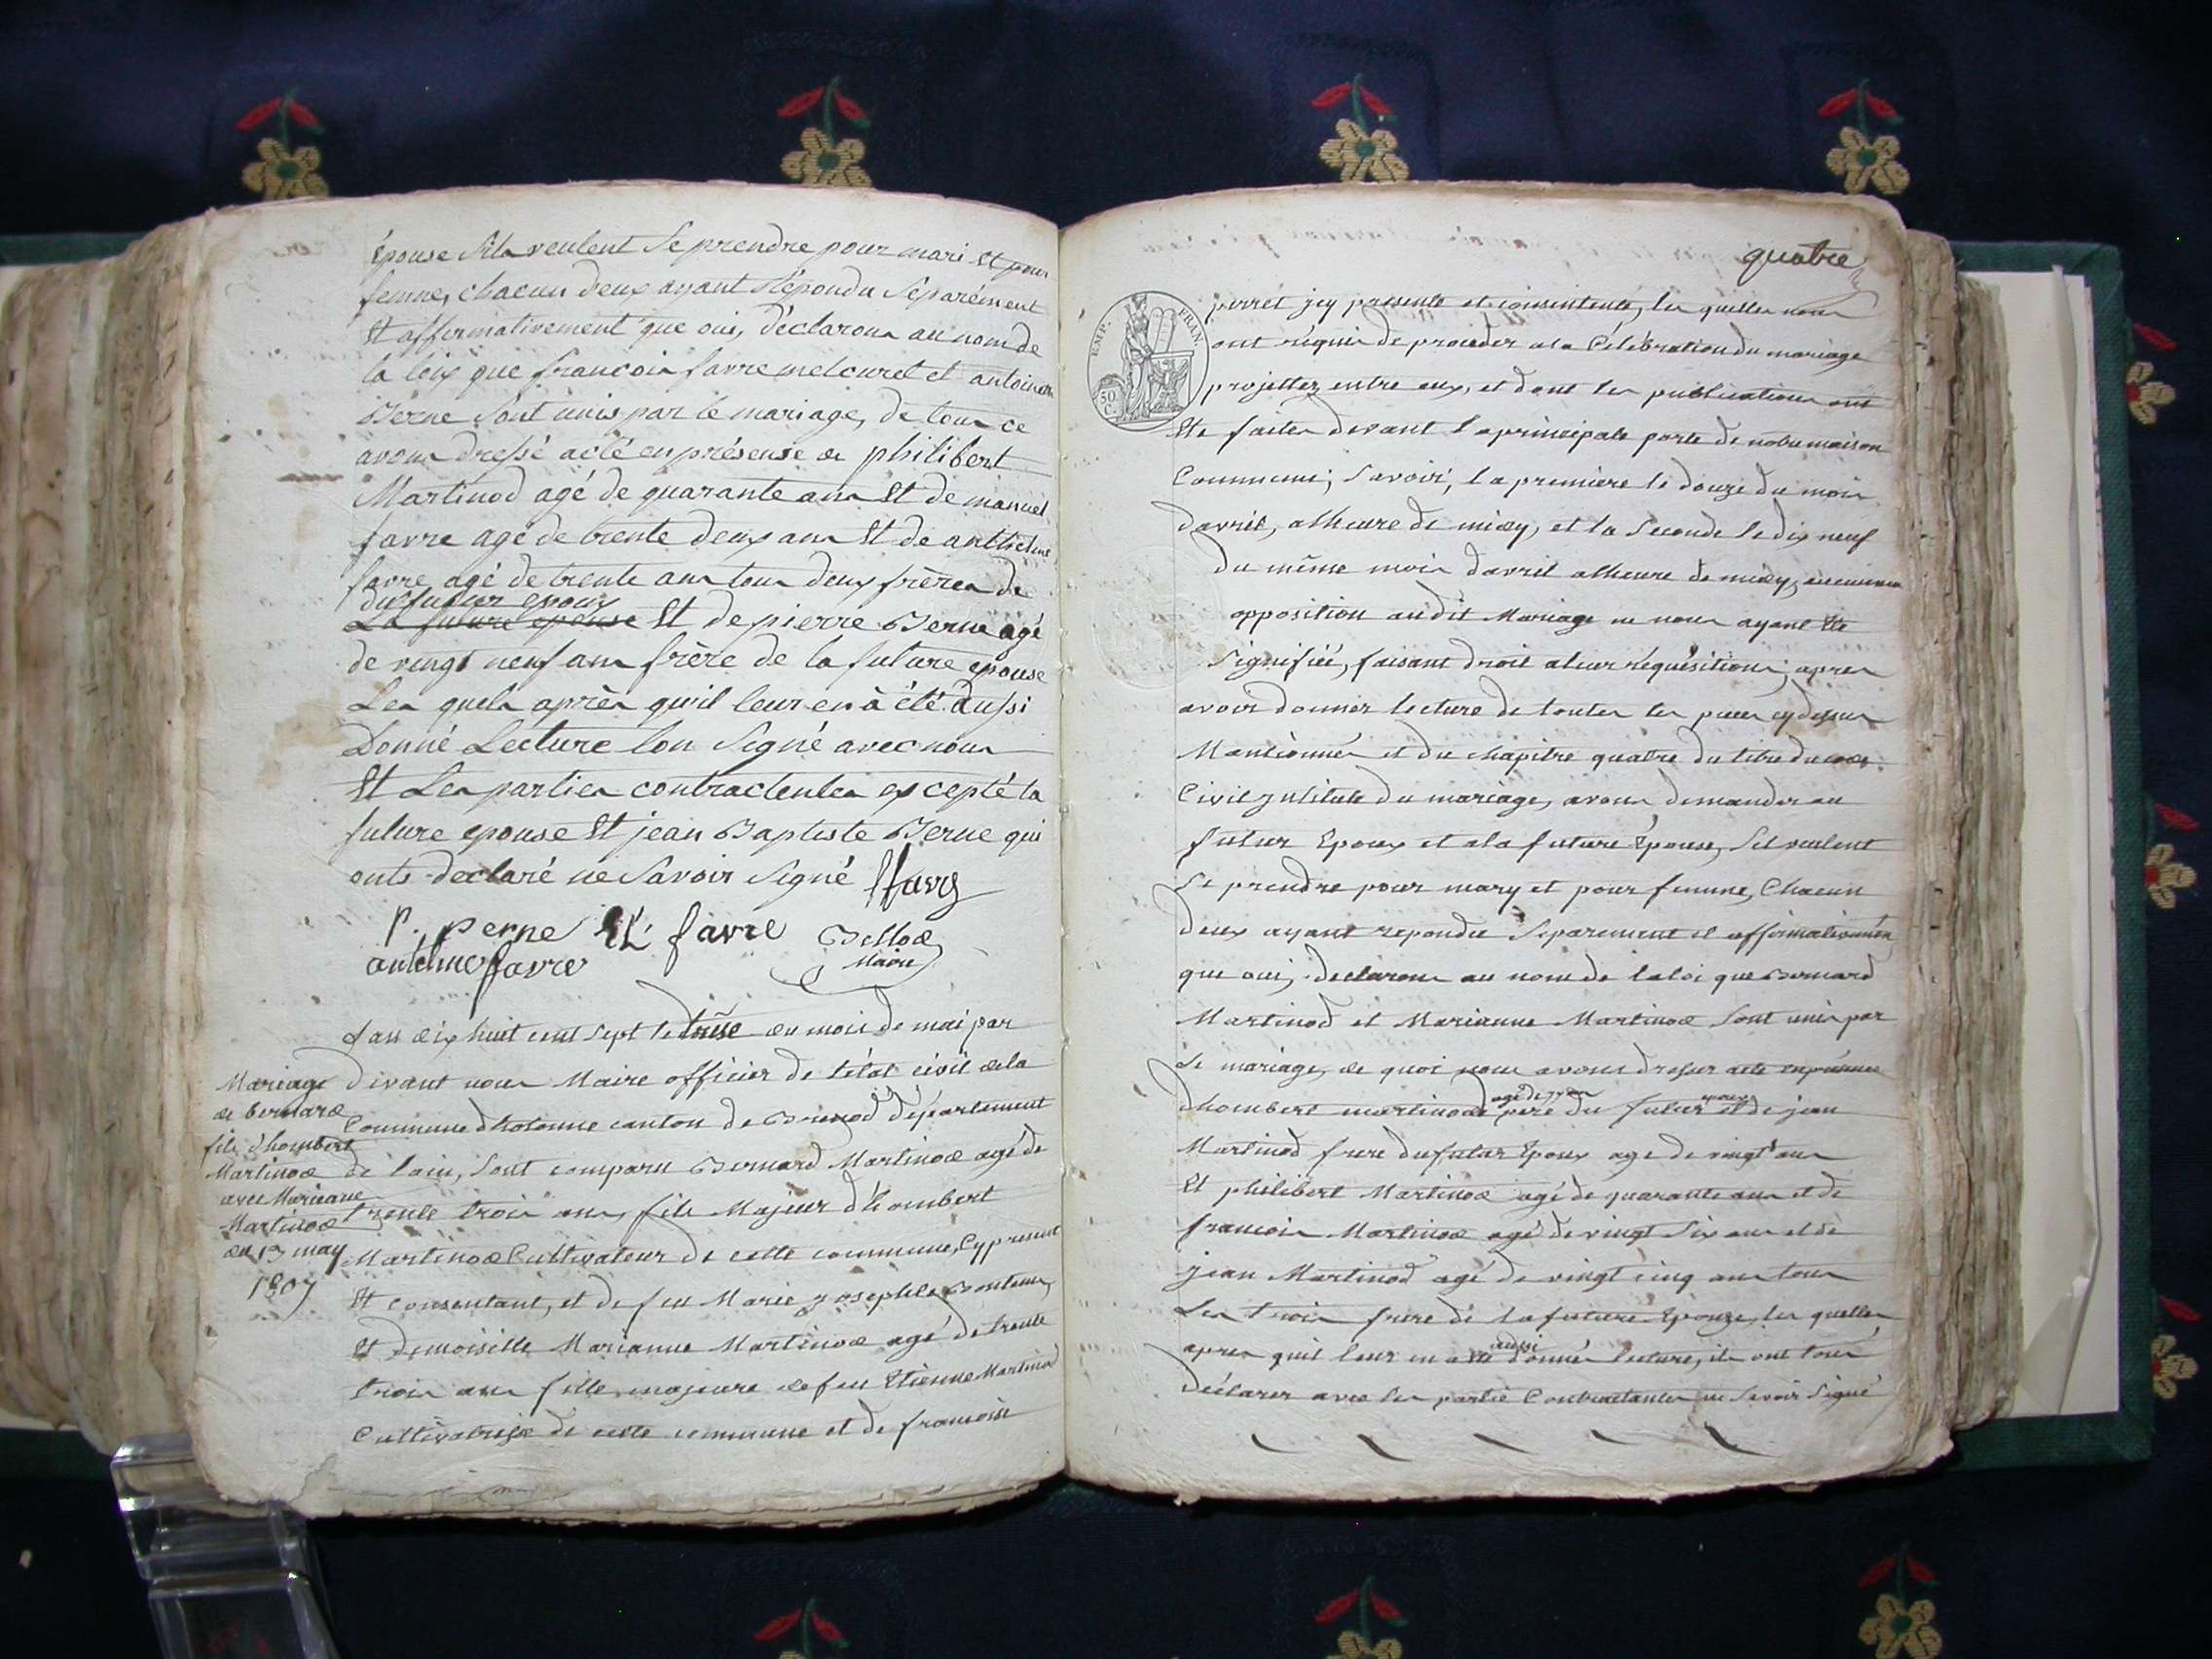 Épouse Sils veulent Se prendre pour mari et pour
femme, chacun deux ayant Répondu Séparément
Et affirmativement que oui, déclarons au nom de
la loix que françois favre melcuret et antoinette
Berne Sont unis par le mariage, de tous ce
avons dressé acté en présense de philibert
Martinod agé de quarante ans Et de manuel
favre agé de trente deux ans Et de anthelme
favre agé de trente ans tous deux frères de
du futur epoux
La future epouse Et de pierre Berne agé
de vingt neuf ans frère de la future epouse
Les quels après quil leur en à été aussi
Donné Lecture lon Signé avec nous
Et Les parties contractentes excepté la
future epouse Et jean Baptiste Berne qui
onts declaré ne Savoir Signé ffavre
P. perne favre Bellod
antelme favre Maire
Lan dix huit cent Sept le treise du mois de mai par
Mariage
de bernard
fils d'hombert
Martinod
avec Marianne
Martinod
du 13 may
1807
Devant nous Maire officier de l'état civil de la
Commune dhotonne canton de Brenod département
de lain, Sont comparu Bernard Martinod agé de
trente trois ans, fils Majeur d'hombert
Martinod Cultivateur de cette commune, Cy présent
Et Consentant, et de feu Marie josephte
Et Demoiselle Marianne Martinod agé de trente
trois ans fille majeure de feu Etienne Martinod
Cultivatrise de cette commune et de francoise
quatre
EMP. FRAN.
50 C.
perret jcy presente et consintente, les quelles nous
ont réquis de proceder a la Célébration du mariage
projettez entre eux, et dont les publications ont
Ete faites devant la principale porte de notre maison
Commune; Savoir, la premiere le douze du mois
davril, alheure de midy, et la Seconde le dix neuf
du même mois davril alheure de midy, aucunne
opposition au dit Mariage ne nous ayant Ete
Signifiée, faisant droit aleur réquésitions; apres
avoir donner lecture de toutes les pieces cy dessus
Mentionnés et du chapitre quatre du titre du code
Civil jntitulé du mariage, avons demander au
futur Epoux et a la future Épouse, Sils veulent
Se prendre pour mary et pour femme, Chacun
deux ayant repondu Séparement et affirmativement
que oui, declarons au nom de la loi que Bernard
Martinod et Marianne Martinod Sont unis par
le mariage, de quoi nous avons dresser acte en présence
dhombert martinod père du futur epoux et de jean
Martinod frere du futur Epoux age de vingt ans
Et philibert Martinod agé de quarante ans et de
francois Martinod agé de vingt Six ans et de
jean Martinod agé de vingt cinq ans tous
Les trois frere de la future Epouze, les quelles
apres quil leur en a ete aussi donnés lecture, ils ont tous
déclarer avec les partie Contractantes ne Savoir Signé